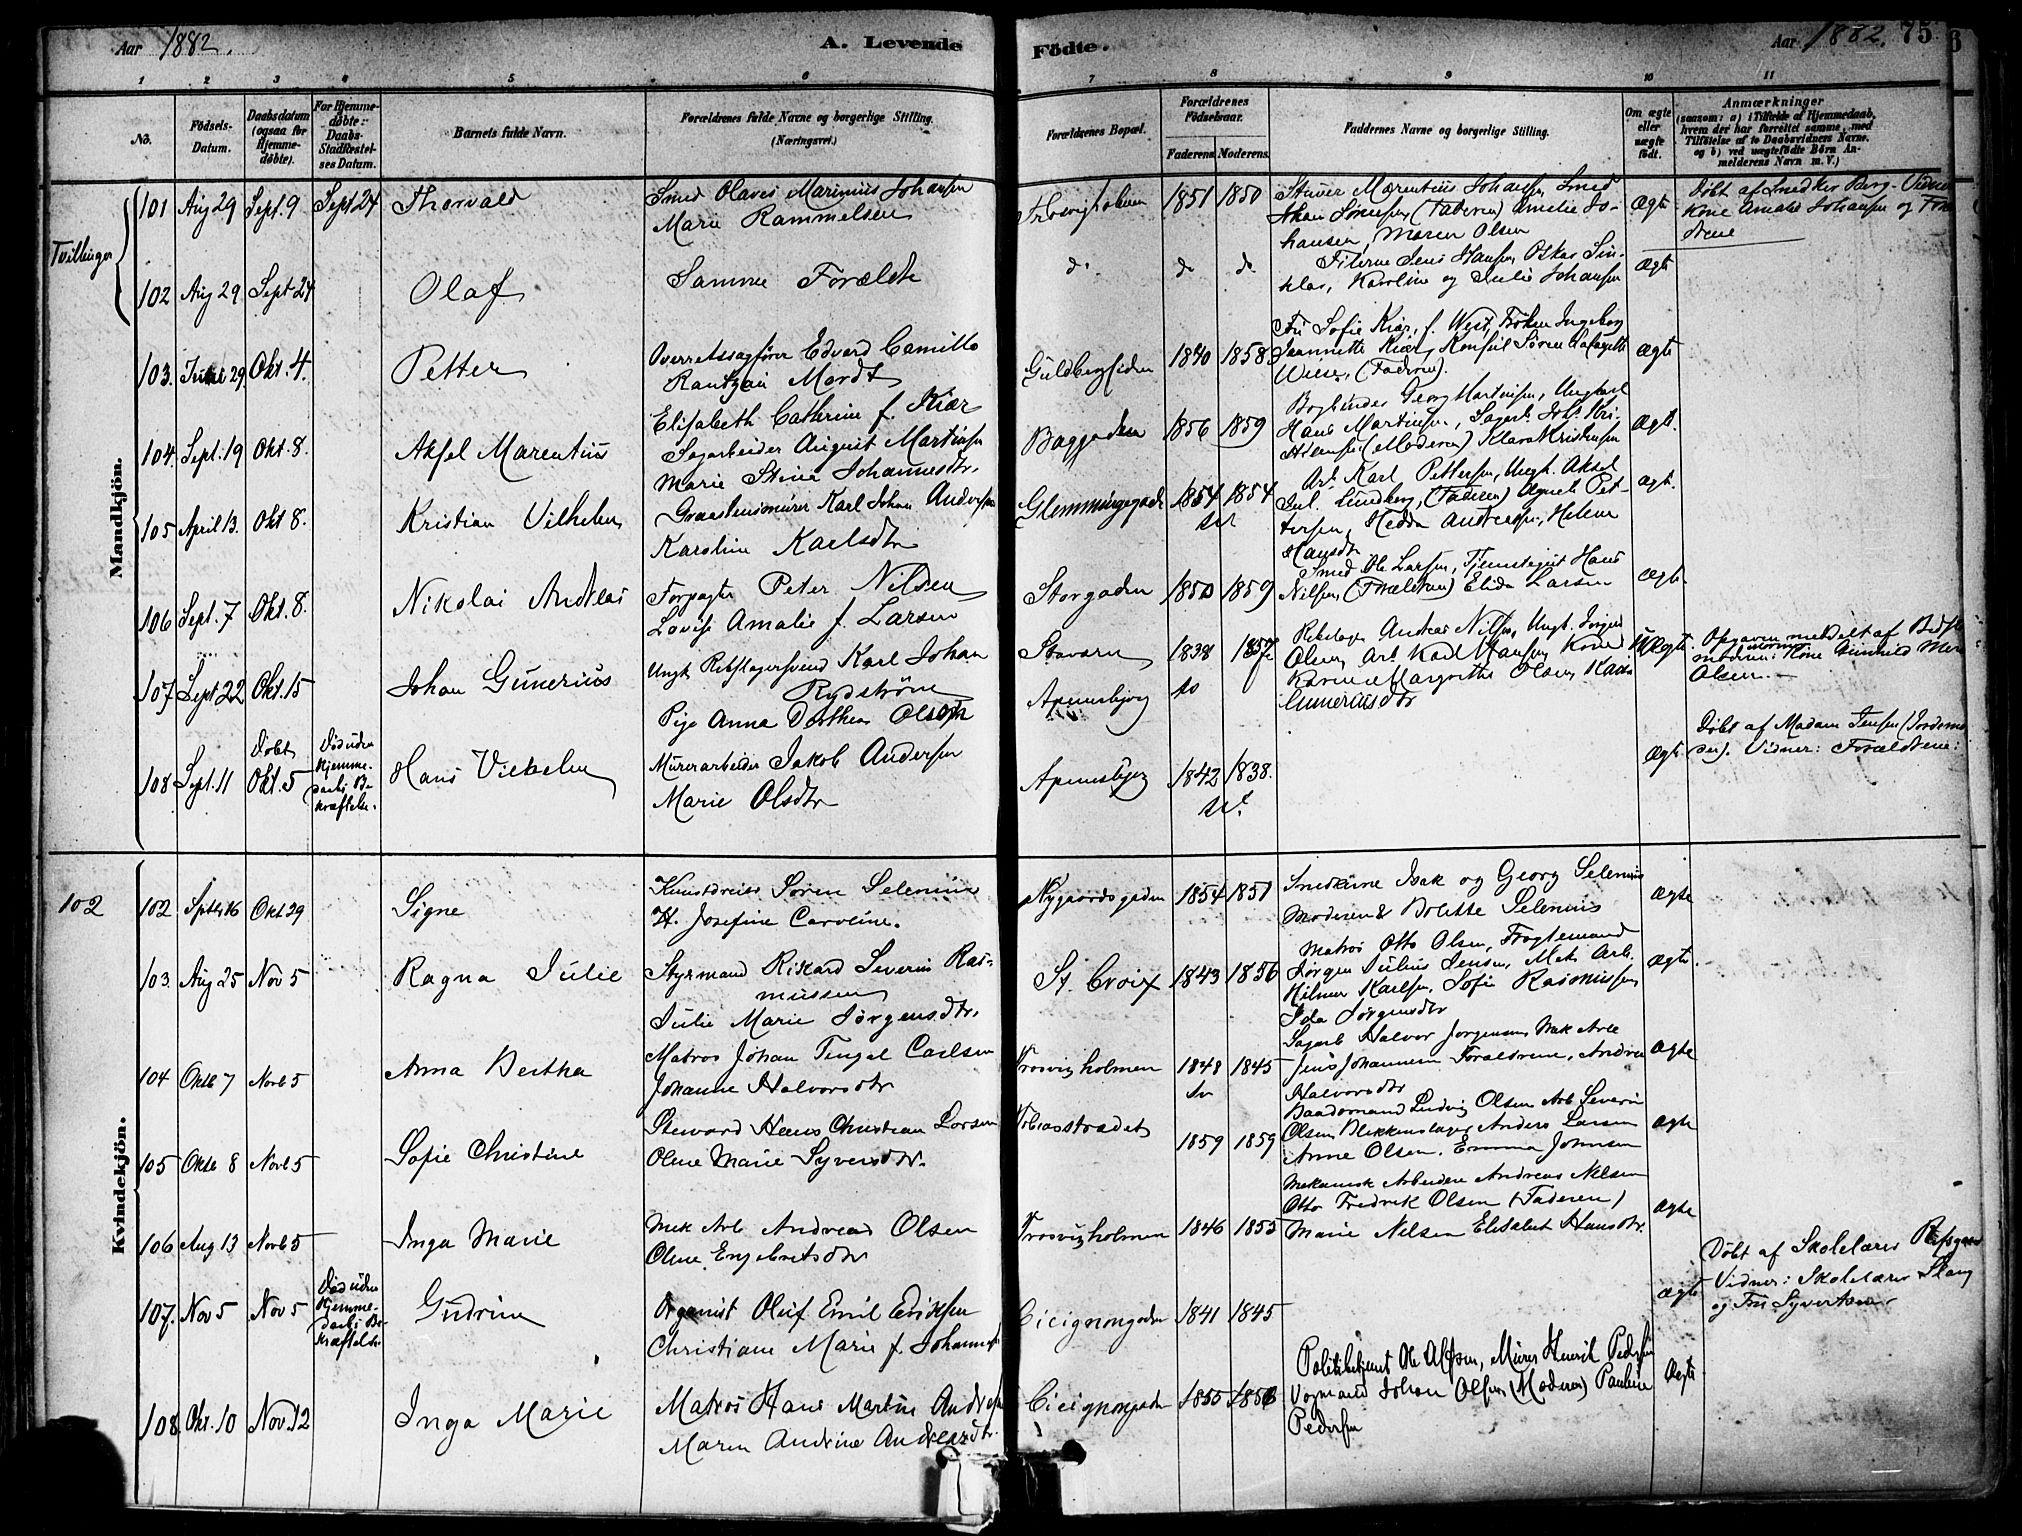 Aar 1882. A. Levende Födte. Aar 1882. 75
1 2 3 4 5 6 7 8 9 10 11
No.
Födsels-Datum.
Daabsdatum (ogsaa for Hjemmedöbte).
For Hjemmedöbte: Daabs-Stadfæstelses Datum.
Barnets fulde Navn.
Forældrenes fulde Navne og borgerlige Stilling.
(Næringsvei.)
Forældrenes Bopæl.
Forældrenes Födselsaar.
Faderens. Moderens.
Faddernes Navne og borgerlige Stilling.
Om ægte eller uægte födt.
Anmærkninger
(saasom: a) i Tilfælde af Hjemmedaab, hvem der har forrettet samme, med Tilföielse af to Daabsvidners Navne, og b) ved uægtefödte Börn Anmelderens Navn m. V.)
Mandkjön.
Tvillinger
101 Aug 29 Sept. 9 Sept 24 Thorvald
Smed Olaves Marinius Johansen
Marie Rammelsen
1851 1850
Johansen (Faderen) Amelie Johansen, Maren Olsen
Ægte
102 Aug 29 Sept 24 Olaf
Samme Foræld
do do do
Karoline og Julie Johansen
Ægte
103. Juni 29. Okt. 4. Petter
Overretssagförer Edvard Camillo
Rantzau Mordt
Elisabeth Cathrine f. Kiær
Guldbergsiden 1840 1858
Fru Sofie Kiær, f. West, Fröken Ingeborg
Jeannette Kiær, Konsul Sören Lafayette
Wiese, (Faderen).
Ægte
104. Sept. 19 Okt. 8. Aksel Marentius
Sagarbeider August Martinsen
Marie Stina Johannesdtr.
Baggaden 1856 1859
Bogbinder Georg Martinsen, Ungkarl
Hans Martinsen, (Moderen) Klara Kristensen
Ægt.
105 April 13. Okt 8. Kristian Vilhelm
Graastensmurer Karl Johan Andersen
Karoline Karlsdtr
Glemmingegaden 1854 1854
Arb. Karl Pettersen, Ungk. Aksel
Jul. Lundberg, (Faderen) Agnete Pettersen, Hedda Andreasen, Helene
Hansdtr
Ægt.
106 Sept. 7 Okt. 8. Nikolai Andreas
Forpagter Peter Nilsen
Lovise Amalie f. Larsen
Storgaden 1850 1859
Smed Ole Larsen, Tjenestegut Hans
Nilsen, (Forældrene) Elida Larsen
Ægte
107. Sept. 22 Okt. 15 Johan Gunerius
Ungk. Rebslagersvend Karl Johan
Rydström
Pige Anna Dorthea Olsen
Stavern
Apenesbjerg
1838 1857
Rebslager Andreas Nilsen, Ungk. Jörgen
Olsen, Arb. Karl Hansen, Kone
Karen Margrethe Olsen, Karen
Guneriusdtr
Uægte.
Opgaven meddelt af Bedstemoderen: Kone Gunhild
Olsen.
108 Sept. 11 Döbt Okt. 5 Död uden Hjemmedaabs Bekræftelse. Hans Vilhelm
Murerarbeider Jakob Andersen
Marie Olsdtr
Apenesbjerg 1842 1838.
Ægte
Döbt af Madam Jensen (Jordemoder). Vidner: Forældrene:
Kvindekjön.
102
102 Septb 16 Okt 29 Signe
Kunstdreier Sören Selenius
H. Josefine Caroline.
Nygaardsgaden 1854 1851
Smedene Isak og Georg Selenius
Moderen & Bolette Selenius
Ægte
103. Aug 25 Nov 5 Ragna Julie
Styrmand Rikard Severin Rasmussen
Julie Marie Jörgensdtr.
St. Croix 1843 1856
Matros Otto Olsen, Fragtemand
Jörgen Julius Jensen, Mek. Arb.
Hilmer Karlsen, Sofie Rasmussen
Ida Jörgensdtr
Ægte.
104 Oktb 7 Novb 5 Anna Bertha
Matros Johan Tengel Carlsen
Johanne Halvorsdtr
Trosvigholmen 1848 1845
Sagarb Halvor Jorgensen, Mek Arb
Jens Johannesen Forældrene, Andrea
Halvorsdtr
Ægte
105 Oktb 8 Novb 5 Sofie Christine
Steward Hans Christian Larsen
Oline Marie Syversdtr.
1859 1859
Baadsmand Ludvig Olsen Arb Severin
Olsen, Blikkenslager Anders Larsen
Anne Olsen. Emma Johnsen
Ægte
106 Aug 13 Novb 5 Inga Marie
Mek Arb Andreas Olsen
Oline Engebretsdtr
Trosvigholmen 1846 1855
Mekanisk Arbeidere Andreas Nilsen
Otto Fredrik Olsen (Faderen)
Marie Nelsen Elisabet Hansdtr.
Ægte
107. Nov 5 Nov 5 Död uden Hjemmedaabs Bekræftelse Gudrun
Organist Oluf Emil Eriksen
Christiane Marie f. Johannesen
Cicignongaden 1841 1845
Ægte
Döbt af Skolelærer
Vidner: Skolelærer Stang
og Fru Syvertsen
108. Okt. 10 Nov. 12 Inga Marie
Matros Hans Martin Andresen
Maren Andrine Andreasdtr.
Cicignongaden 1855 1856
Politibetjent Ole Olsen, Murer Henrik Pedersen
Vognmand Johan Olsen (Moderen) Pauline
Pedersen
Ægte